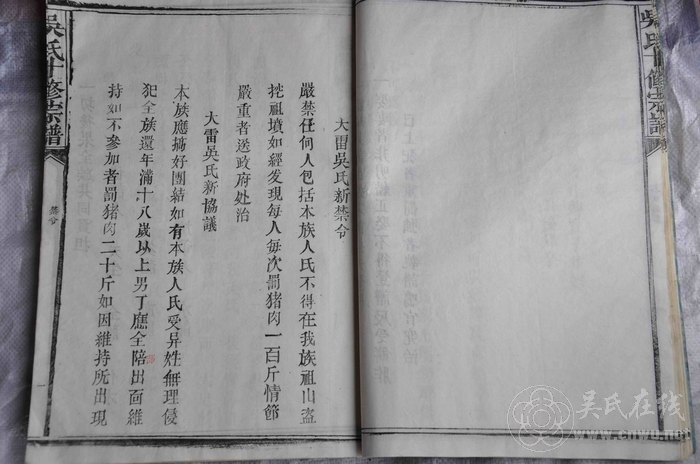 大雷吳氏新禁令
嚴禁任何人包括本族人氏不得在我族祖山盗
挖祖墳如經发現每人每次罰猪肉一百斤情節
嚴重者送政府处治
大雷吳氏新協議
本族應搞好團結如有本族人氏受异姓無理侵
犯全族還年滿十八歲以上男丁應全陪出面維
持如不參加者罰猪肉二十斤如因維持所出現
吳氏十修宗譜
禁令
吳氏十修宗譜
吴氏在线
www.cnwu.net